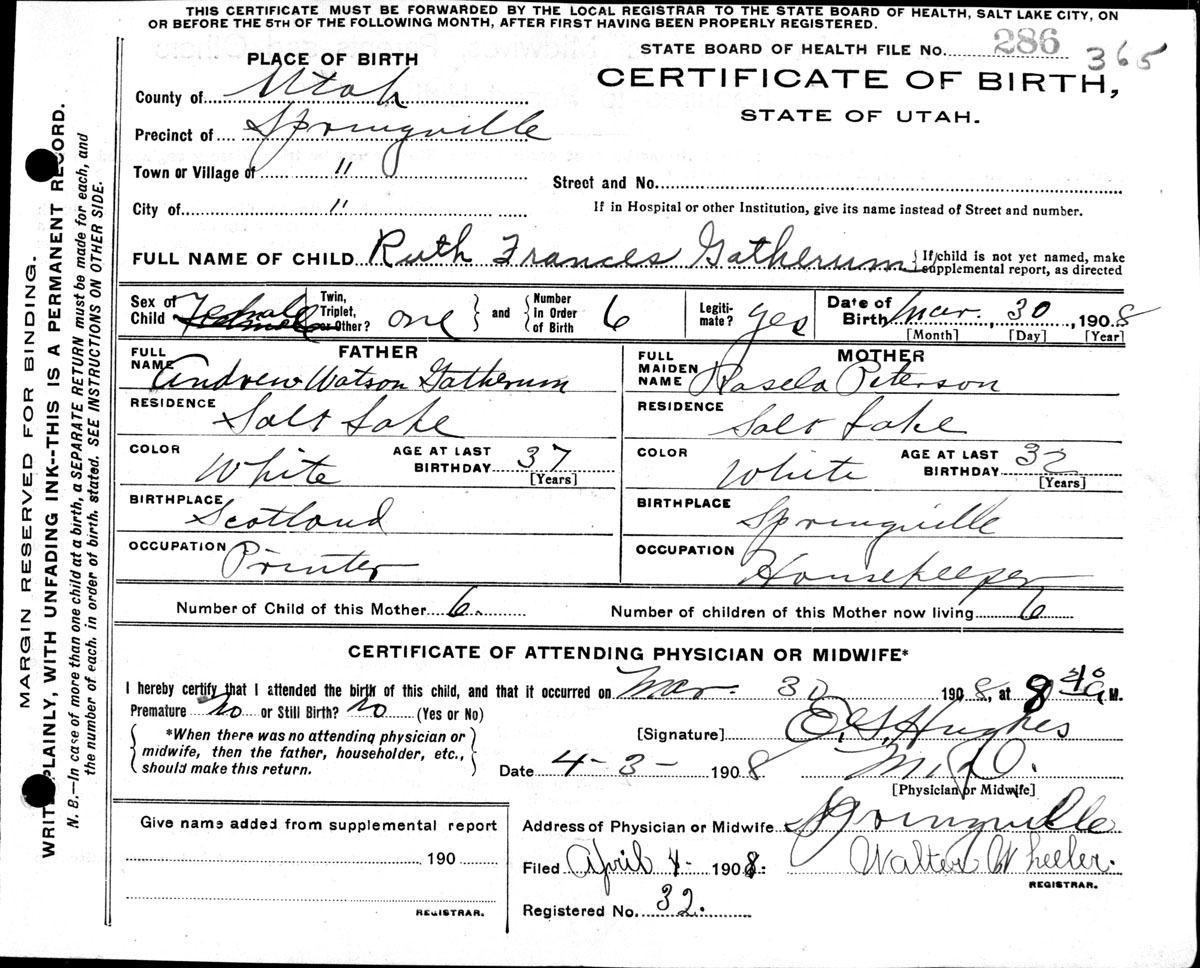 THIS CERTIFICATE MUST BE FORWARDED BY THE LOCAL REGISTRAR TO THE STATE BOARD OF HEALTH, SALT LAKE CITY, ON
OR BEFORE THE 5TH OF THE FOLLOWING MONTH, AFTER FIRST HAVING BEEN PROPERLY REGISTERED.
STATE BOARD OF HEALTH FILE No. 286 365
CERTIFICATE OF BIRTH,
STATE OF UTAH.
PLACE OF BIRTH
County of Utah
Precinct of Springville
Town or Village of "
City of "
Street and No.
If in Hospital or other Institution, give its name instead of Street and number.
FULL NAME OF CHILD Ruth Frances Gatherum { If child is not yet named, make supplemental report, as directed
Sex of Child Female Twin, Triplet, or Other? one } and { Number In Order of Birth 6 Legitimate? yes Date of Birth Mar. 30, 1908
[Month] [Day] [Year]
FATHER
FULL NAME Andrew Watson Gatherum
RESIDENCE Salt Lake
COLOR White AGE AT LAST BIRTHDAY 37
[Years]
BIRTHPLACE Scotland
OCCUPATION Printer
MOTHER
FULL MAIDEN NAME Rasela Peterson
RESIDENCE Salt Lake
COLOR White AGE AT LAST BIRTHDAY 32
[Years]
BIRTHPLACE Springville
OCCUPATION Housekeeper
Number of Child of this Mother 6. Number of children of this Mother now living 6
CERTIFICATE OF ATTENDING PHYSICIAN OR MIDWIFE*
I hereby certify that I attended the birth of this child, and that it occurred on Mar. 30 1908, at 8 40 a M.
Premature No or Still Birth? No (Yes or No)
{ *When there was no attending physician or
midwife, then the father, householder, etc.,
should make this return. }
[Signature] E. G. Hughes
Date 4-3- 1908 M.D.
[Physician or Midwife]
Give name added from supplemental report
190
REGISTRAR.
Address of Physician or Midwife Springville
Filed April 4- 1908: Walter Wheeler.
REGISTRAR.
Registered No. 32.
MARGIN RESERVED FOR BINDING.
WRITE PLAINLY, WITH UNFADING INK--THIS IS A PERMANENT RECORD.
N. B.—In case of more than one child at a birth, a SEPARATE RETURN must be made for each, and
the number of each, in order of birth, stated. SEE INSTRUCTIONS ON OTHER SIDE.